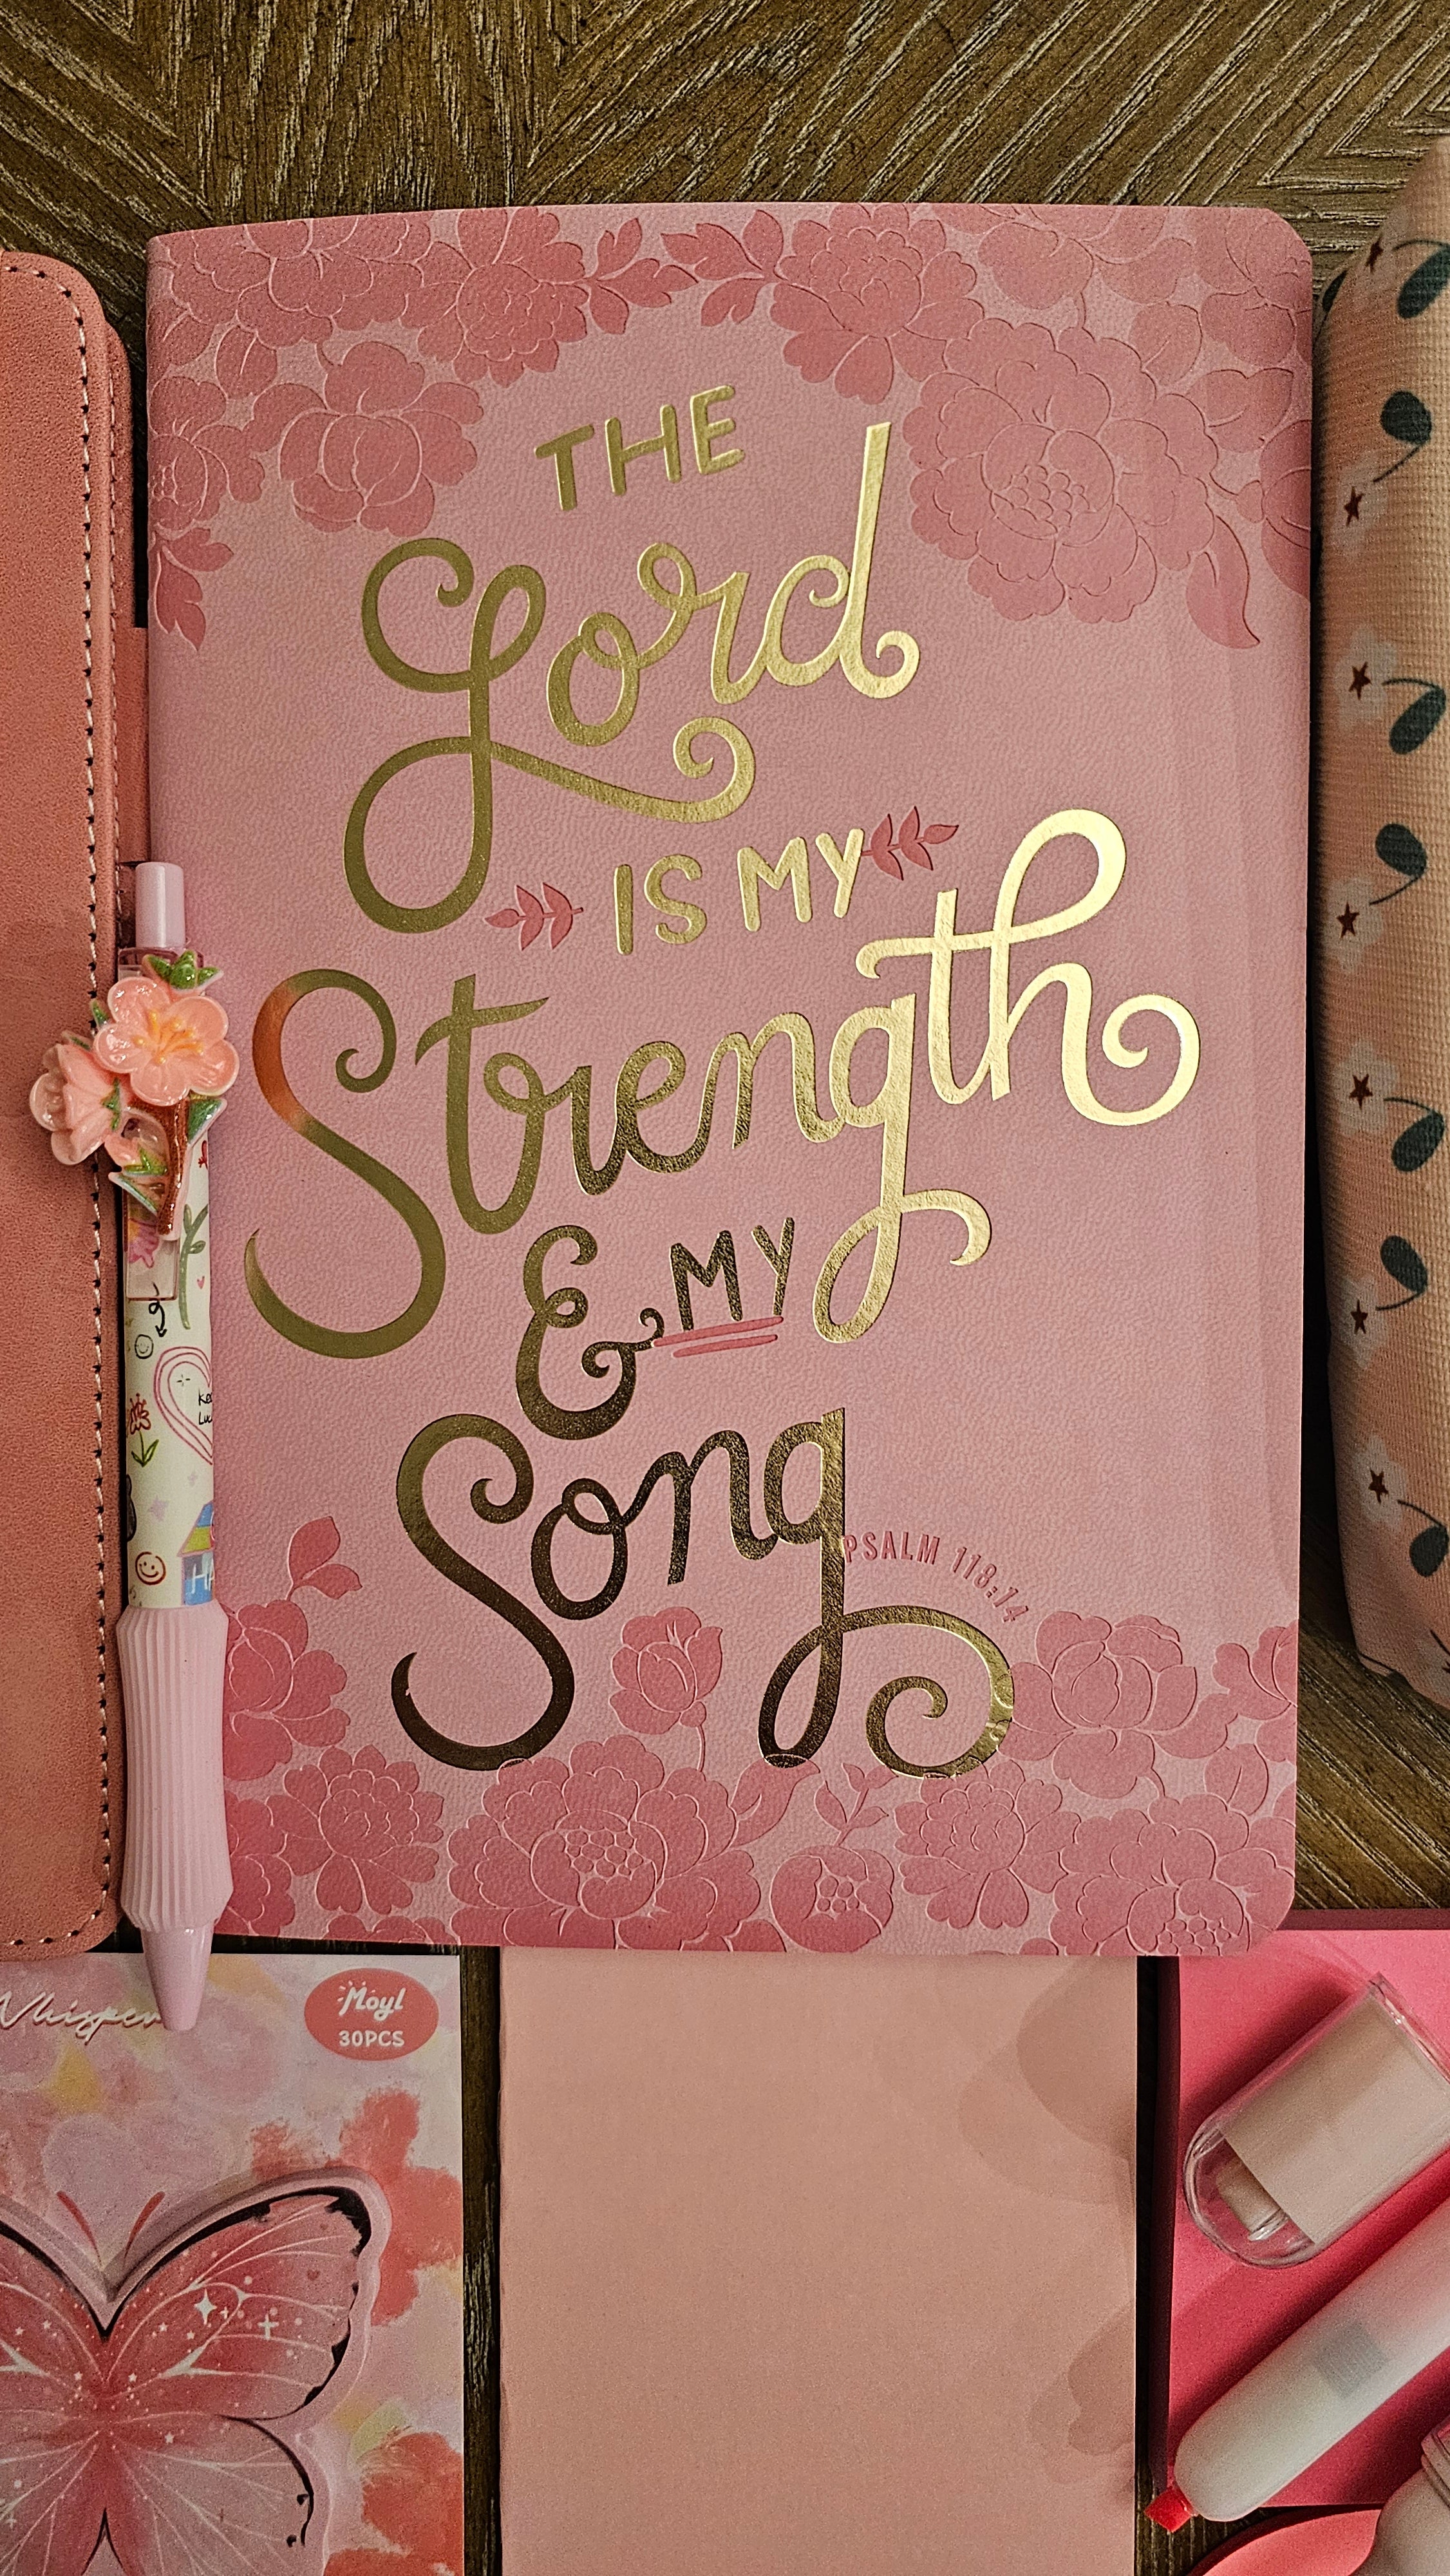 THE
Lord
IS MY
Strength
& MY
Song
PSALM 118:14
Whisper
Moyl
30PCS